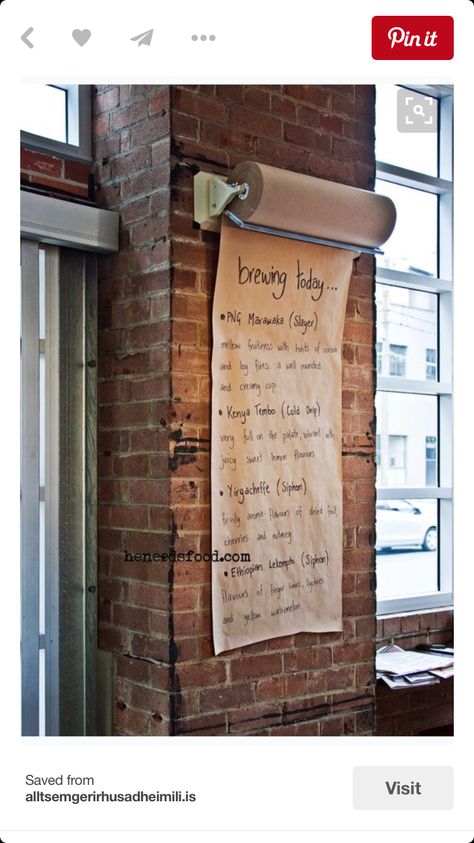 Pin it
brewing today...
• PNG Marawaka (Slayer)
mellow fruitiness with hints of cocoa
and log fires. a well rounded
and creamy cup
• Kenya Tembo (Cold Drip)
very full on the palate, vibrant with
juicy sweet lemon flavours
• Yirgacheffe (Siphon)
fruity aroma. flavours of dried fruit,
cherries and nutmeg
heneedsfood.com
• Ethiopian Lekempte (Siphon)
flavours of finger limes, lychees
and yellow watermelon
Saved from
alltsemgerirhusadheimili.is
Visit